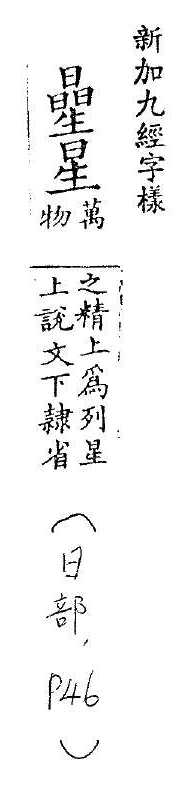 新加九經字樣
曐星
萬
物
之精上爲列星
上說文下隸省
(日部, P46)